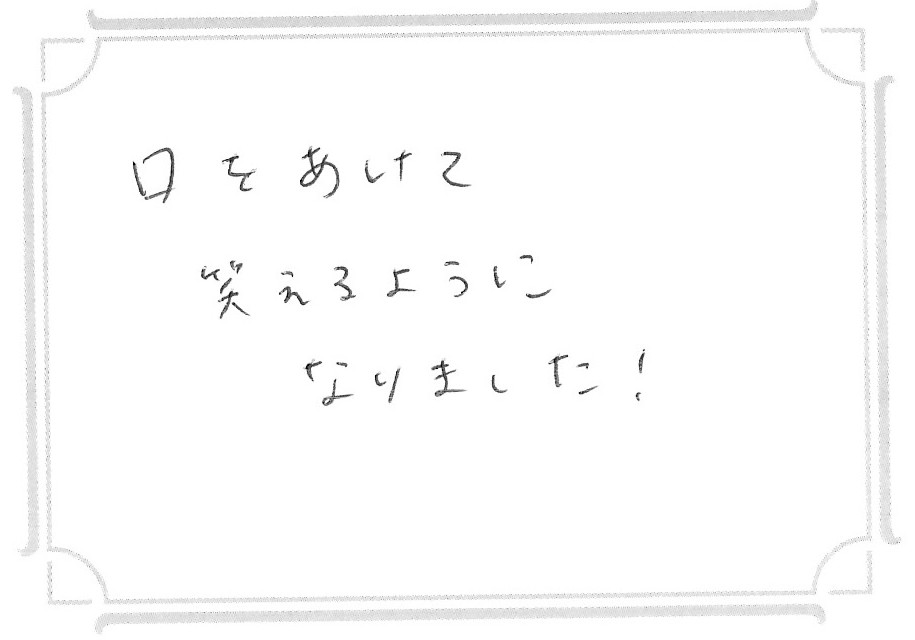 口をあけて
笑えるように
なりました!